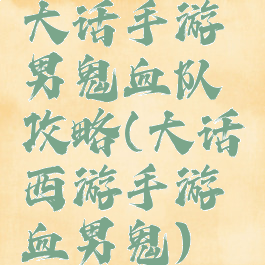 大话手游
男鬼血队
攻略(大话
西游手游
血男鬼)